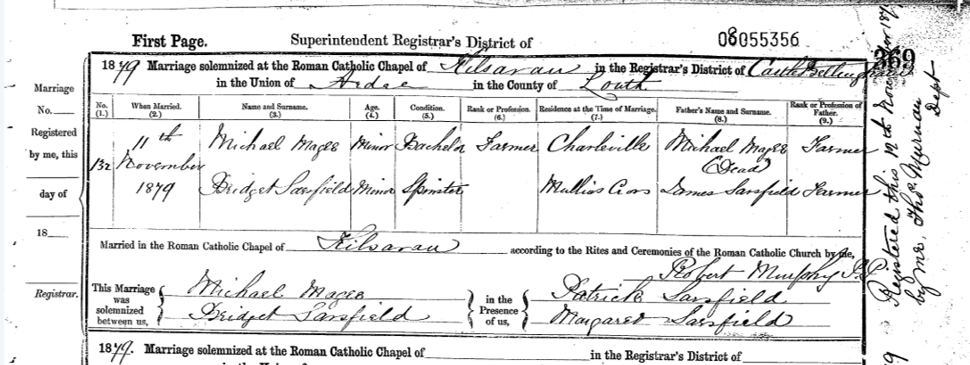 First Page. Superintendent Registrar's District of 08055356
369
1879 Marriage solemnized at the Roman Catholic Chapel of Kilsaran in the Registrar's District of Castle Bellingham
in the Union of Ardee in the County of Louth
Marriage
No.
Registered
by me, this
day of
18
Registrar.
No. When Married. Name and Surname. Age. Condition. Rank or Profession. Residence at the Time of Marriage. Father's Name and Surname. Rank or Profession of Father.
(1.) (2.) (3.) (4.) (5.) (6.) (7.) (8.) (9.)
132 11th November 1879
Michael Magee Minor Bachelor Farmer Charleville Michael Magee (Dead) Farmer
Bridget Sarsfield Minor Spinster Mullins Cross James Sarsfield Farmer
Married in the Roman Catholic Chapel of Kilsaran according to the Rites and Ceremonies of the Roman Catholic Church by me,
Robert Murphy
This Marriage was solemnized between us, Michael Magee
Bridget Sarsfield
in the Presence of us, Patrick Sarsfield
Margaret Sarsfield
1879. Marriage solemnized at the Roman Catholic Chapel of in the Registrar's District of
Registered this 12th
by me, Thos. Murnan
Dept